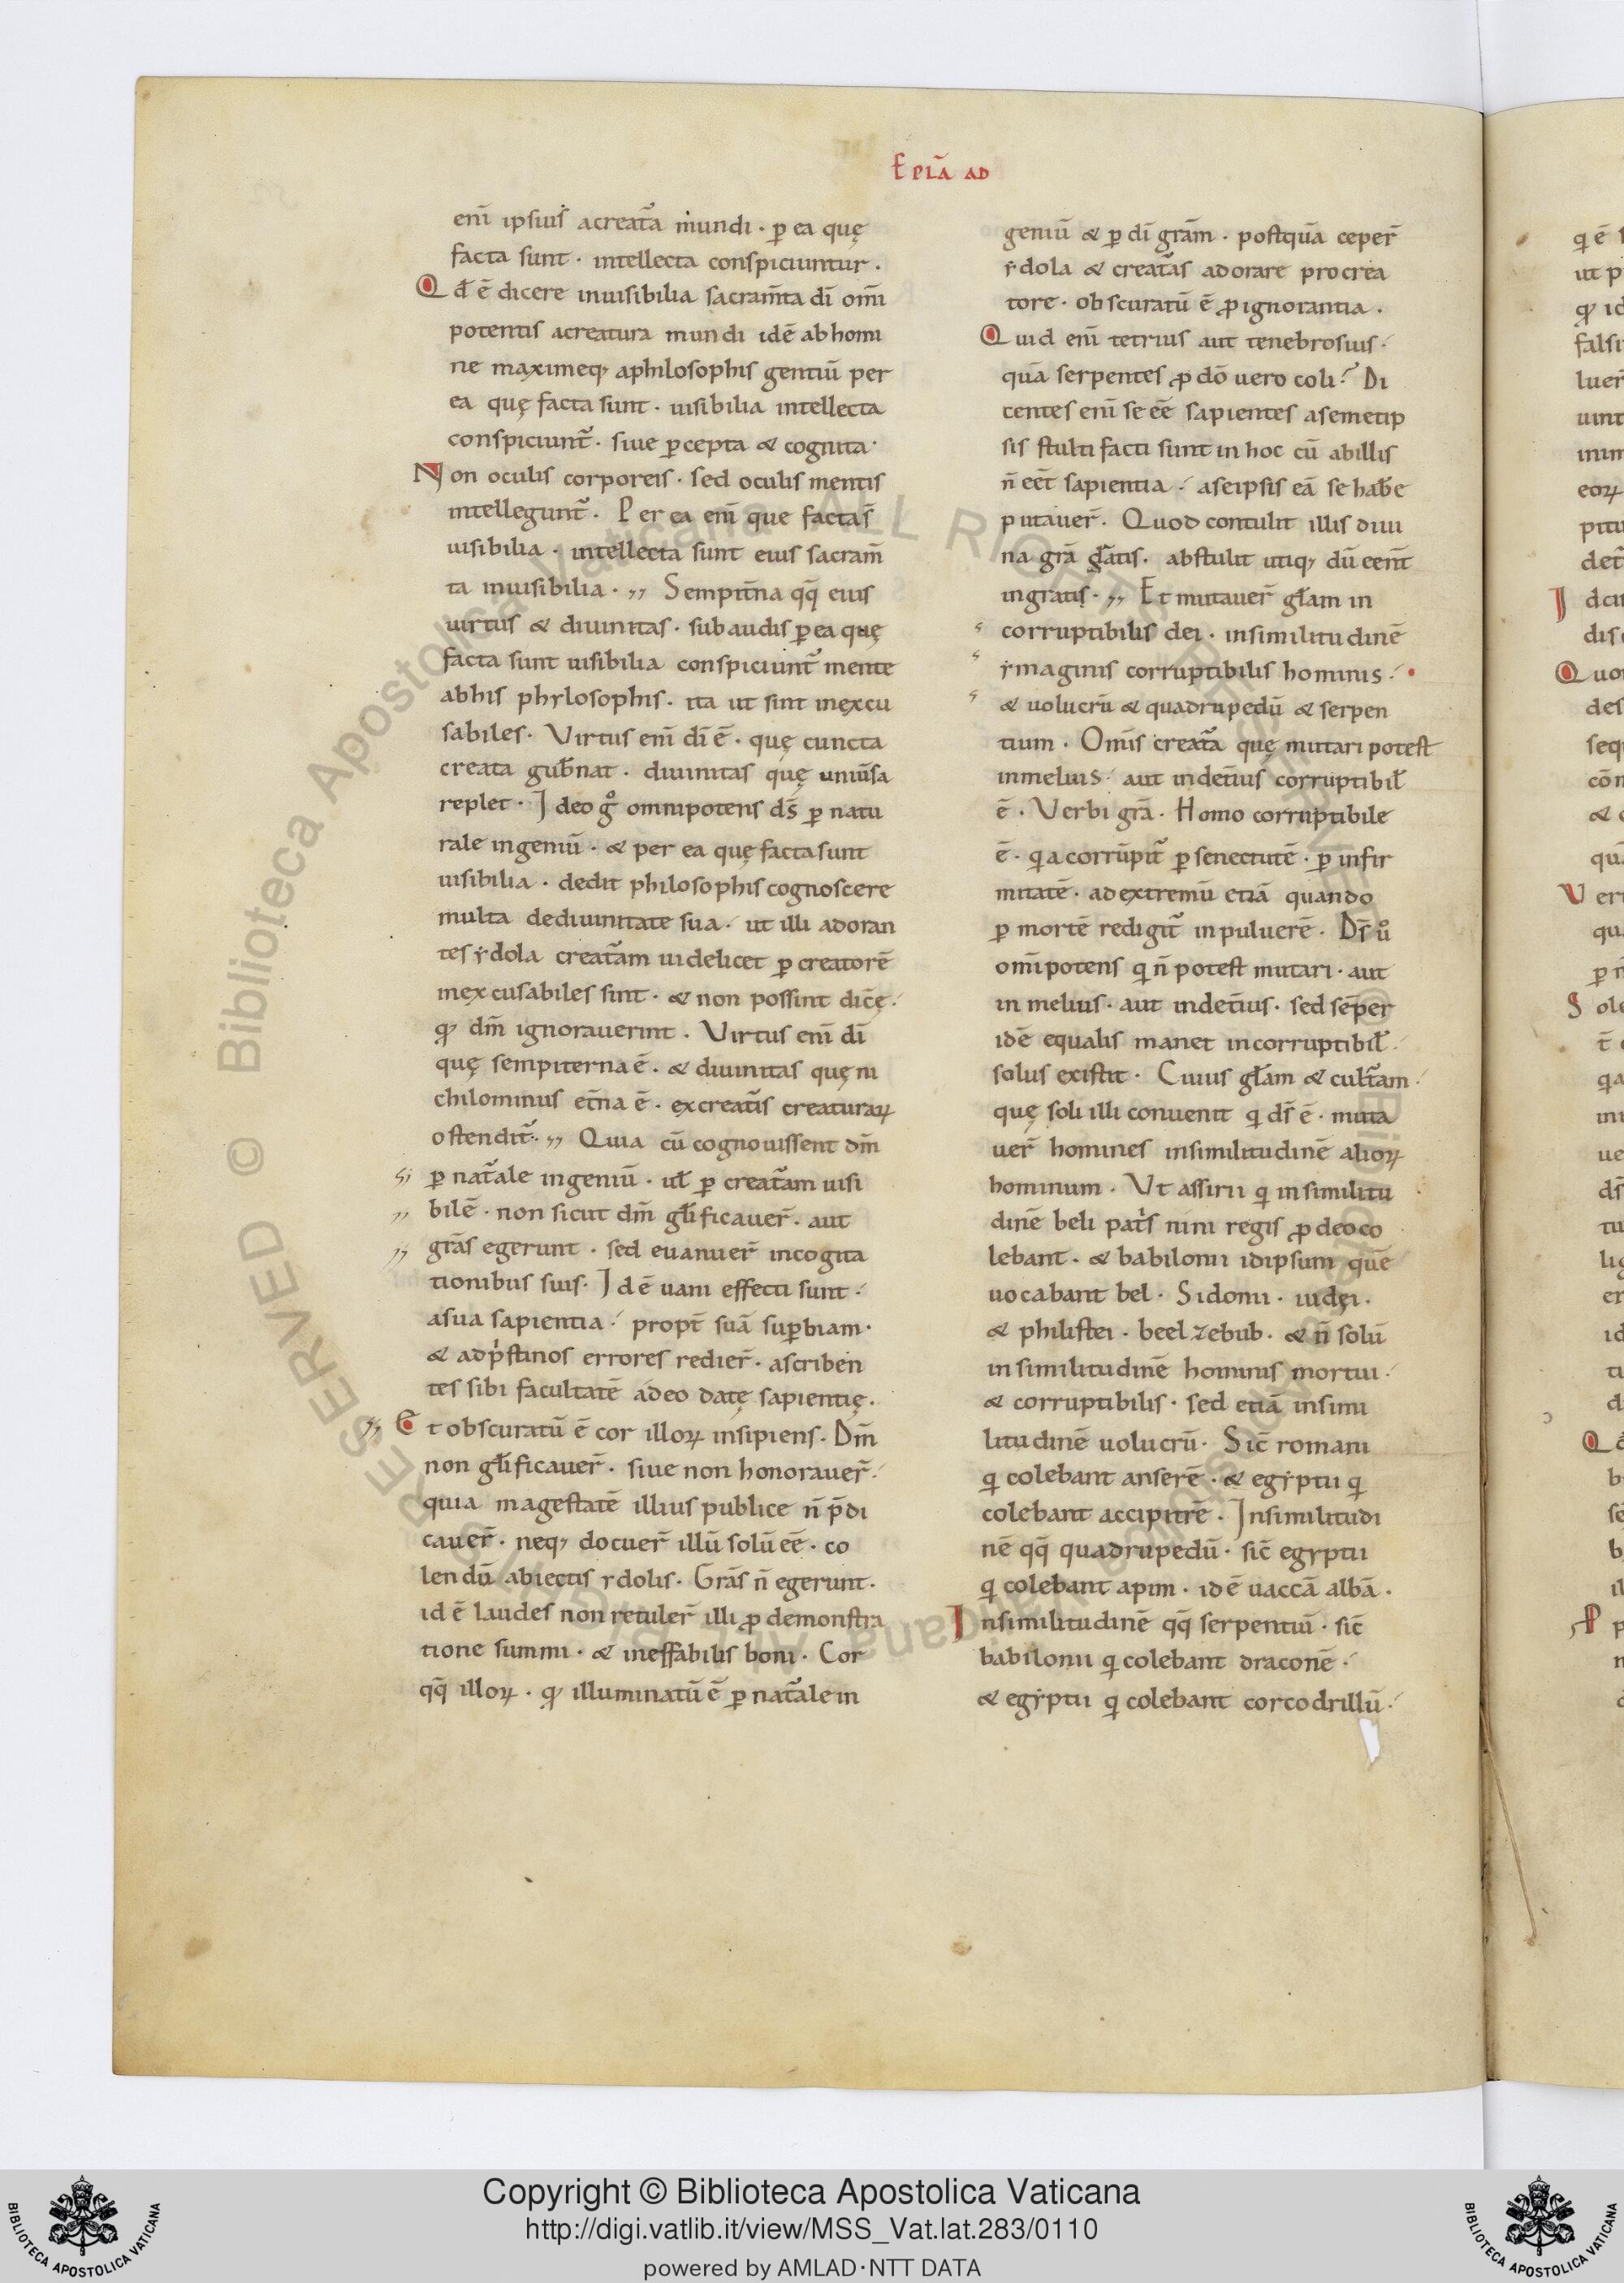 Eplā ad
eni̅ ipsius acreat̃a mundi · ꝑ ea quę
facta sunt · intellecta conspiciuntur ·
Qđ ē dicere inuisibilia sacram̅ta dī om̅i
potentis acreatura mundi idē ab homi
ne maximeqꝫ aphilosophis gentiū per
ea quę facta sunt · uisibilia intellecta
conspiciunt̃ · siue ꝑcepta & cognita ·
Non oculis corporeis · sed oculis mentis
intellegunt̃ · Per ea eni̅ que facta s̅
uisibilia · intellecta sunt eius sacram̅
ta inuisibilia · ,, Sempit̃na qq̄ eius
uirtus & diuinitas · subaudis ꝑ ea quę
facta sunt uisibilia conspiciunt̃ mente
abhis phylosophis · ita ut sint inexcu
sabiles · Virtus eni̅ dī ē · quę cuncta
creata gub̅nat · diuinitas quę uniu̅sa
replet · Ideo gͦ omnipotens ds̄ ꝑ natu
rale ingeniū · & per ea quę facta sunt
uisibilia · dedit philosophis cognoscere
multa dediuinitate sua · ut illi adoran
tes ydola creat̃am uidelicet ꝑ creatorē
inexcusabiles sint · & non possint dic̅ę ·
qđ dm̅ ignorauerint · Virtus eni̅ dī
quę sempiterna ē · & diuinitas quę ni
chilominus et̃na ē · excreat̃is creaturaꝝ
ostendit̃ · ,, Quia cū cognouissent dm̅
ꝑ nat̃ale ingeniū · ul̅ ꝑ creat̃am uisi
bilē · non sicut dm̅ gl̅ificauer̅ · aut
gr̅as egerunt · sed euanuer̅ incogita
tionibus suis · Id ē uani effecti sunt ·
asua sapientia · propt̃ suā suꝑbiam ·
& adpͥstinos errores redier̅ · ascriben
tes sibi facultatē adeo datę sapientię ·
,, Et obscuratū ē cor illoꝝ insipiens · Dm̅
non gl̅ificauer̅ · siue non honorauer̅ ·
quia magestatē illius publice n̅ p̄di
cauer̅ · neqꝫ docuer̅ illū solū eē · co
lendū abiectis ydolis · Gr̅as n̅ egerunt ·
id ē laudes non retuler̅ illi ꝓ demonstra
tione summi · & ineffabilis boni · Cor
qq̄ illoꝝ · qđ illuminatū ē ꝑ nat̃ale in
geniū & ꝑ dī gr̅am · postquā ceper̅
ydola & creat̃as adorare procrea
tore · obscuratū ē ꝓ ignorantia ·
Quid eni̅ tetrius aut tenebrosius ·
quā serpentes ꝓ dō uero coli? Di
centes eni̅ se eē sapientes asemetip
sis stulti facti sunt in hoc cū abillis
n̅ eēt sapientia · aseipsis eā se hab̅e
putauer̅ · Quod contulit illis diui
na gr̅a gr̅atis · abstulit utiqꝫ dū een̅t
ingratis · ,, Et mutauer̅ gl̅am in
corruptibilis dei · insimilitudinē
ymaginis corruptibilis hominis ·
& uolucrū & quadrupedū & serpen
tium · Om̅is creat̃a quę mutari potest
inmelius · aut indet̃ius corruptibil̅
ē · Verbi gr̅a · Homo corruptibile
ē · qͥa corrūpit̃ ꝑ senectutē · ꝑ infir
mitatē · ad extremū etiā quando
ꝑ mortē redigit̃ inpuluerē · Ds̄ uͦ
om̅ipotens qͥ n̅ potest mutari · aut
in melius · aut indet̃ius · sed sēper
idē equalis manet incorruptibil̅ ·
solus existit · Cuius gl̅am & cult̃am ·
quę soli illi conuenit qͥ ds̄ ē · muta
uer̅ homines insimilitudinē alioꝝ
hominum · Vt assirii qͥ insimilitu
dinē beli pat̃s nini regis ꝓ deo co
lebant · & babilonii idipsum quē
uocabant bel · Sidonii · iudęi ·
& philistei · beelzebub · & n̅ solū
in similitudinē hominis mortui ·
& corruptibilis · sed etiā insimi
litudinē uolucrū · Sic̅ romani
qͥ colebant anserē · & egyptii qͥ
colebant accipitrē · Insimilitudi
nē qq̄ quadrupedū · sic̅ egyptii
qͥ colebant apim · id ē uaccā albā ·
Insimilitudinē qq̄ serpentiū · sic̅
babilonii qͥ colebant draconē ·
& egyptii qͥ colebant corcodrillū ·
Copyright © Biblioteca Apostolica Vaticana
http://digi.vatlib.it/view/MSS_Vat.lat.283/0110
powered by AMLAD·NTT DATA
BIBLIOTECA APOSTOLICA VATICANA
BIBLIOTECA APOSTOLICA VATICANA